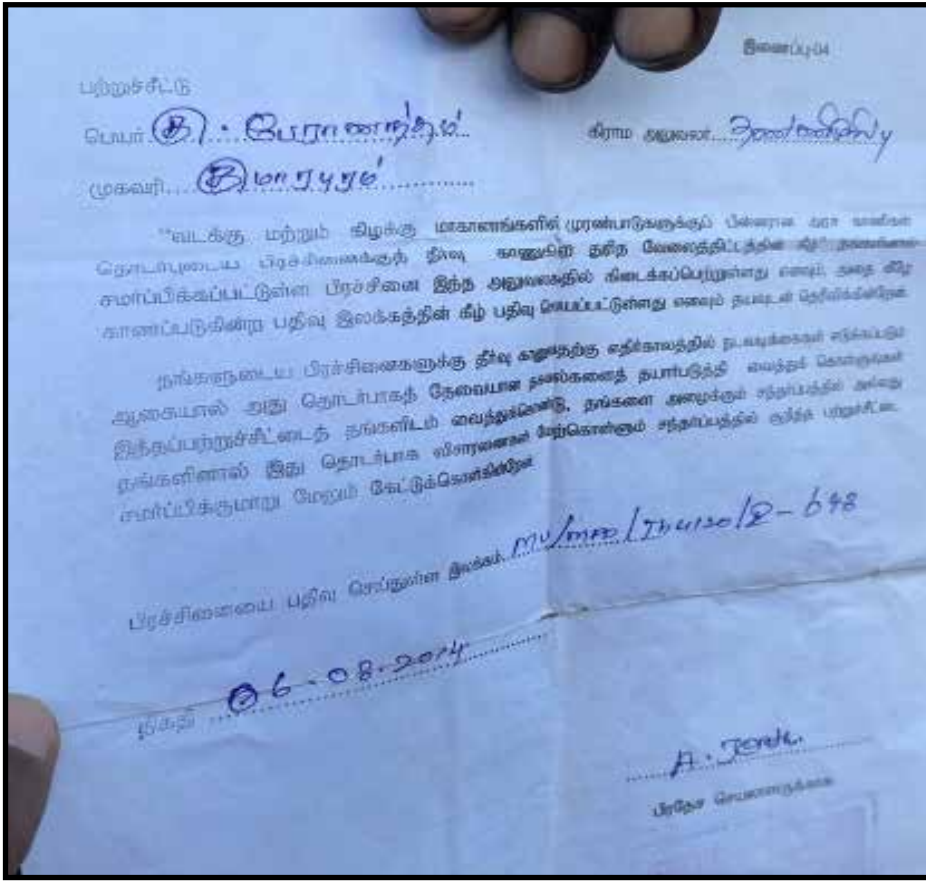 இணைப்பு-04
பற்றுச்சீட்டு
பெயர் தி. பேரானந்தம் கிராம அலுவலர்
முகவரி குமாரபுரம்
"வடக்கு மற்றும் கிழக்கு மாகாணங்களில் முரண்பாடுகளுக்குப் பின்னரான அரச காணிகள்
தொடர்புடைய பிரச்சினைக்குத் தீர்வு காணுகின்ற துரித வேலைத்திட்டத்தின் கீழ்"
சமர்ப்பிக்கப்பட்டுள்ள பிரச்சினை இந்த அலுவலகத்தில் கிடைக்கப்பெற்றுள்ளது எனவும், அதை கீழே
காணப்படுகின்ற பதிவு இலக்கத்தின் கீழ் பதிவு செய்யப்பட்டுள்ளது எனவும் தயவுடன் தெரிவிக்கின்றேன்
தங்களுடைய பிரச்சினைகளுக்கு தீர்வு காணுவதற்கு எதிர்காலத்தில் நடவடிக்கைகள் எடுக்கப்படும்
ஆகையால் அது தொடர்பாகத் தேவையான தகவல்களைத் தயார்படுத்தி வைத்துக் கொள்ளுங்கள்
இந்தப்பற்றுச்சீட்டைத் தங்களிடம் வைத்துக்கொண்டு, தங்களை அழைக்கும் சந்தர்ப்பத்தில் அல்லது
தங்களினால் இது தொடர்பாக விசாரணைகள் மேற்கொள்ளும் சந்தர்ப்பத்தில் குறித்த பற்றுச்சீட்டை
சமர்ப்பிக்குமாறு மேலும் கேட்டுக்கொள்கின்றேன்
பிரச்சினையை பதிவு செய்துள்ள இலக்கம்
திகதி 06-08-2014
பிரதேச செயலாளருக்காக